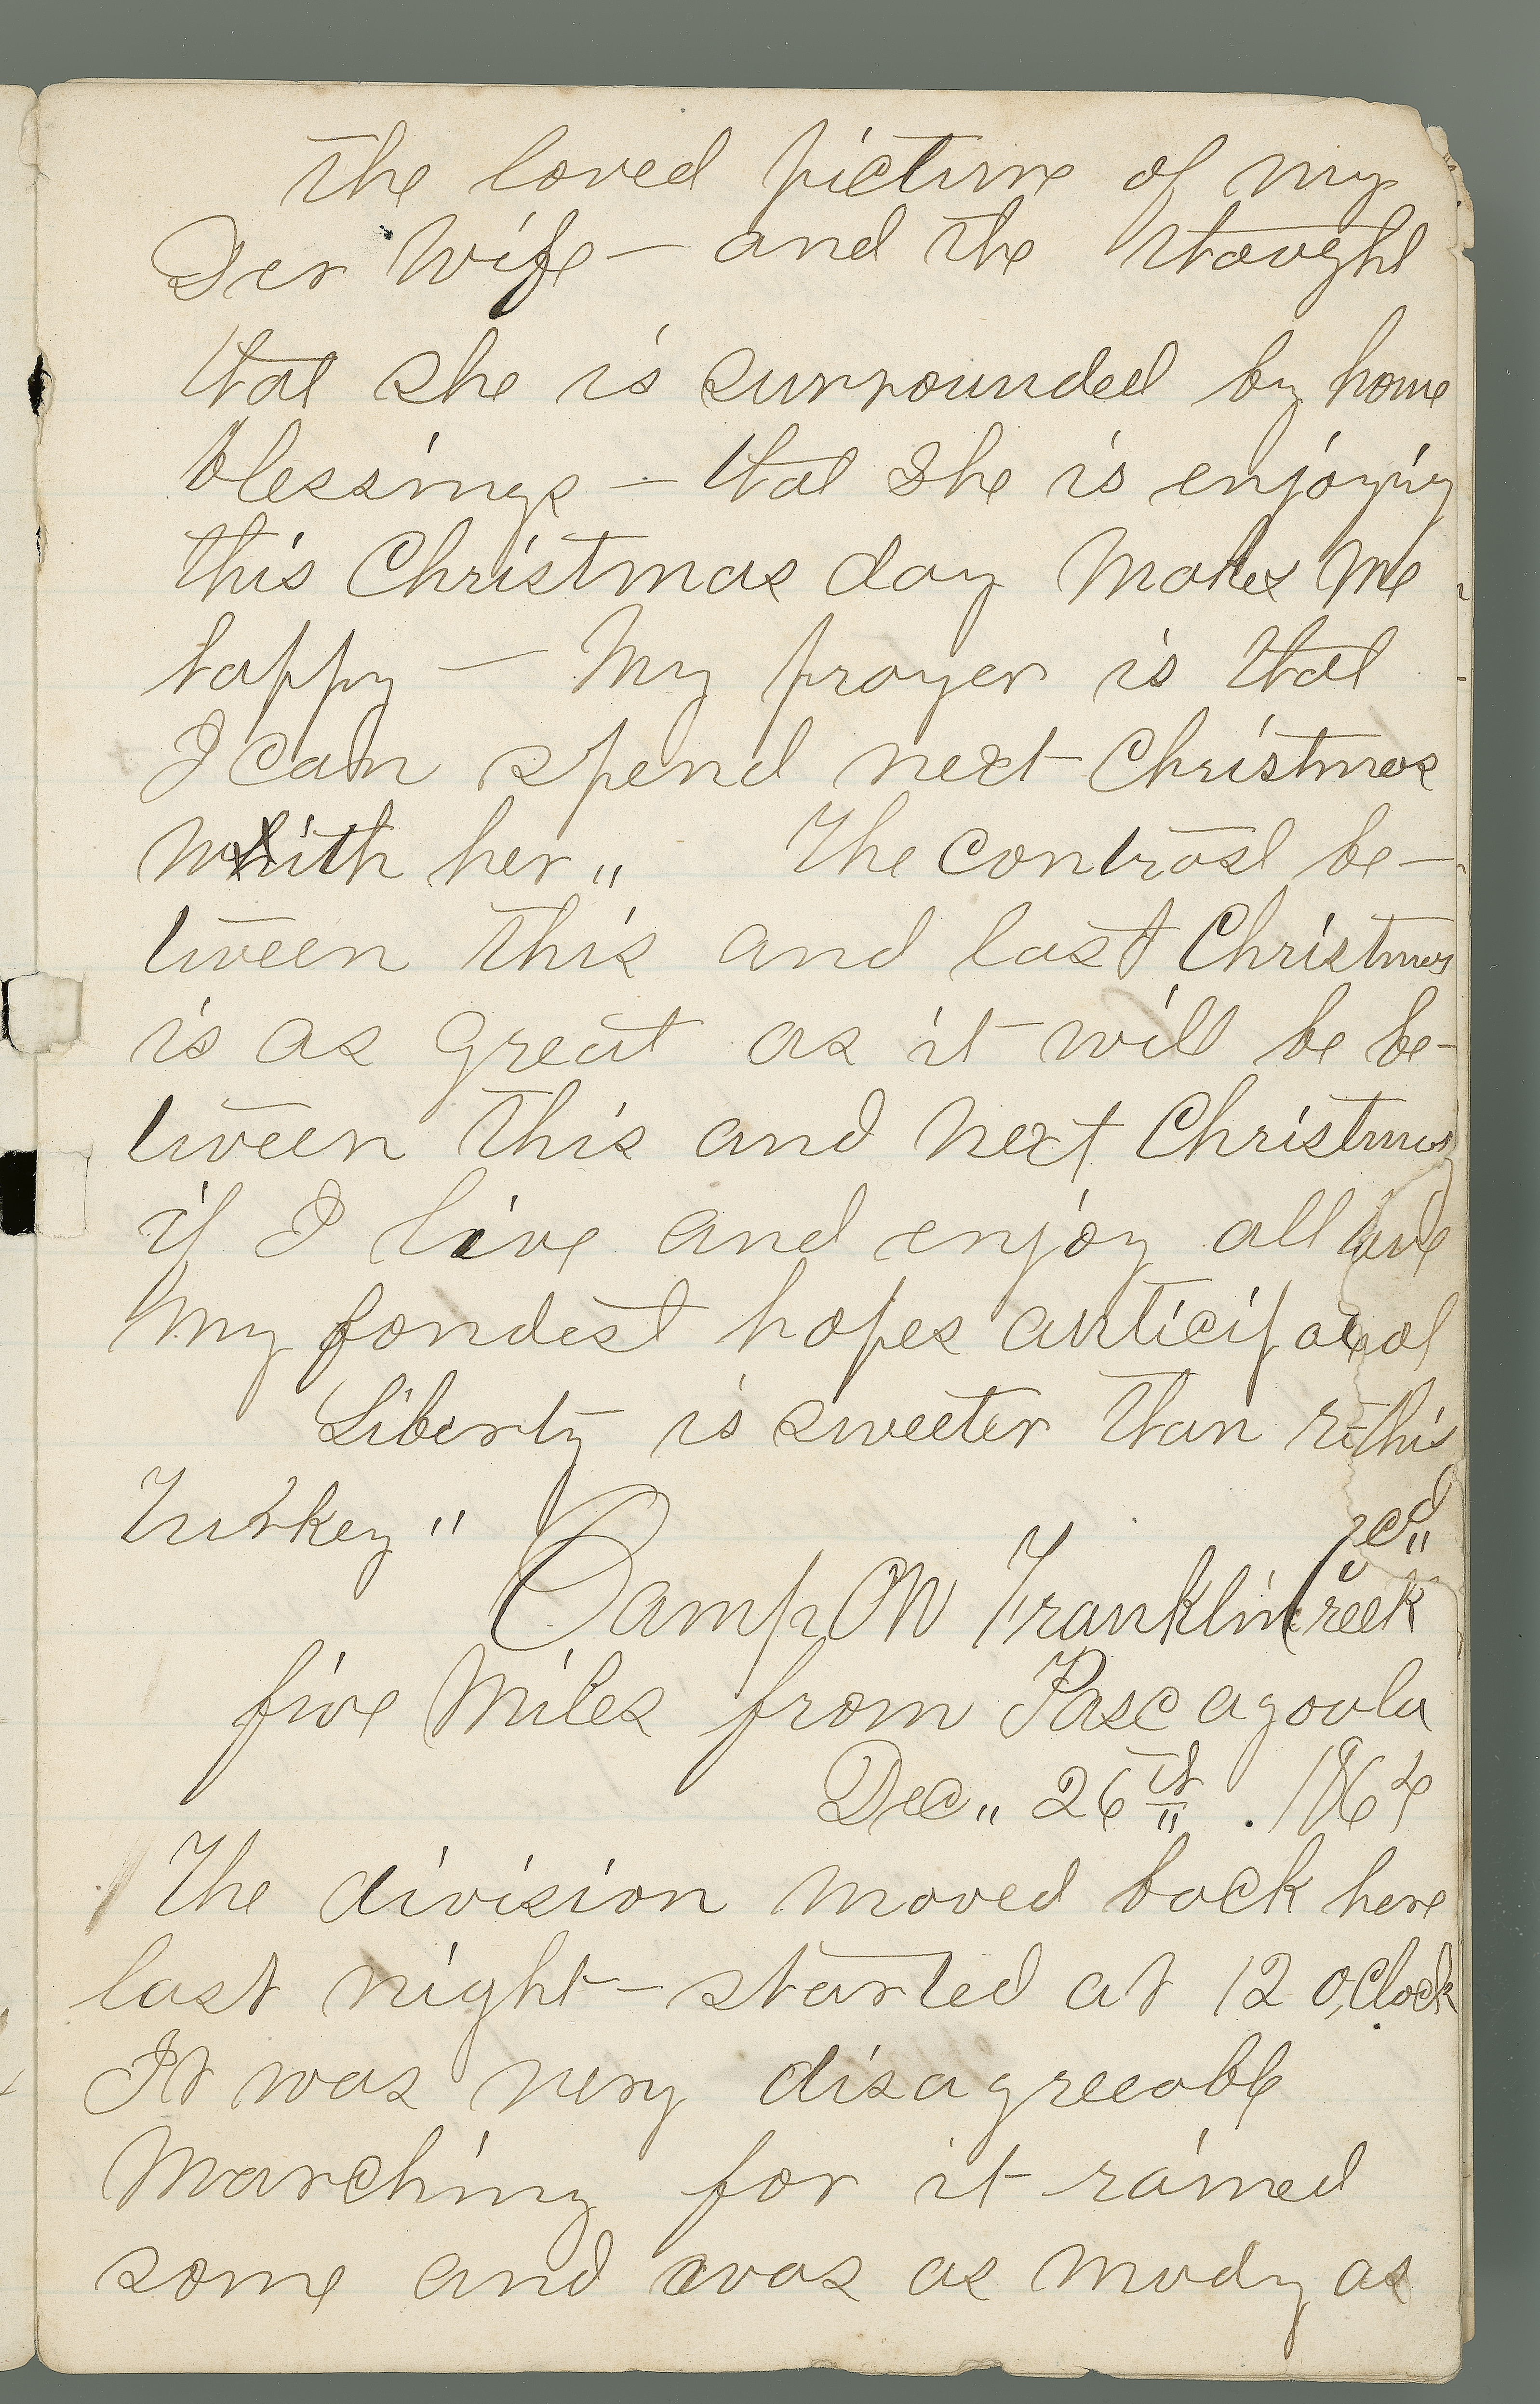 the loved picture of my
Der Wife — and the thought
that she is surrounded by home
blessings — that she is enjoying
this Christmas day Makes Me
happy — My prayer is that
I can spend next Christmas
with her „ The contrast be-
tween this and last Christmas
is as great as it will be be-
tween this and next Christmas
if I live and enjoy all
My fondest hopes
Liberty is sweeter than
Turkey "
Camp On Franklin Creek
five Miles from Pascagoula
Dec„ 26th . 1864
The division moved back here
last night — started at 12 o,Clock
It was very disagreeable
Marching for it rained
some and was as mudy as